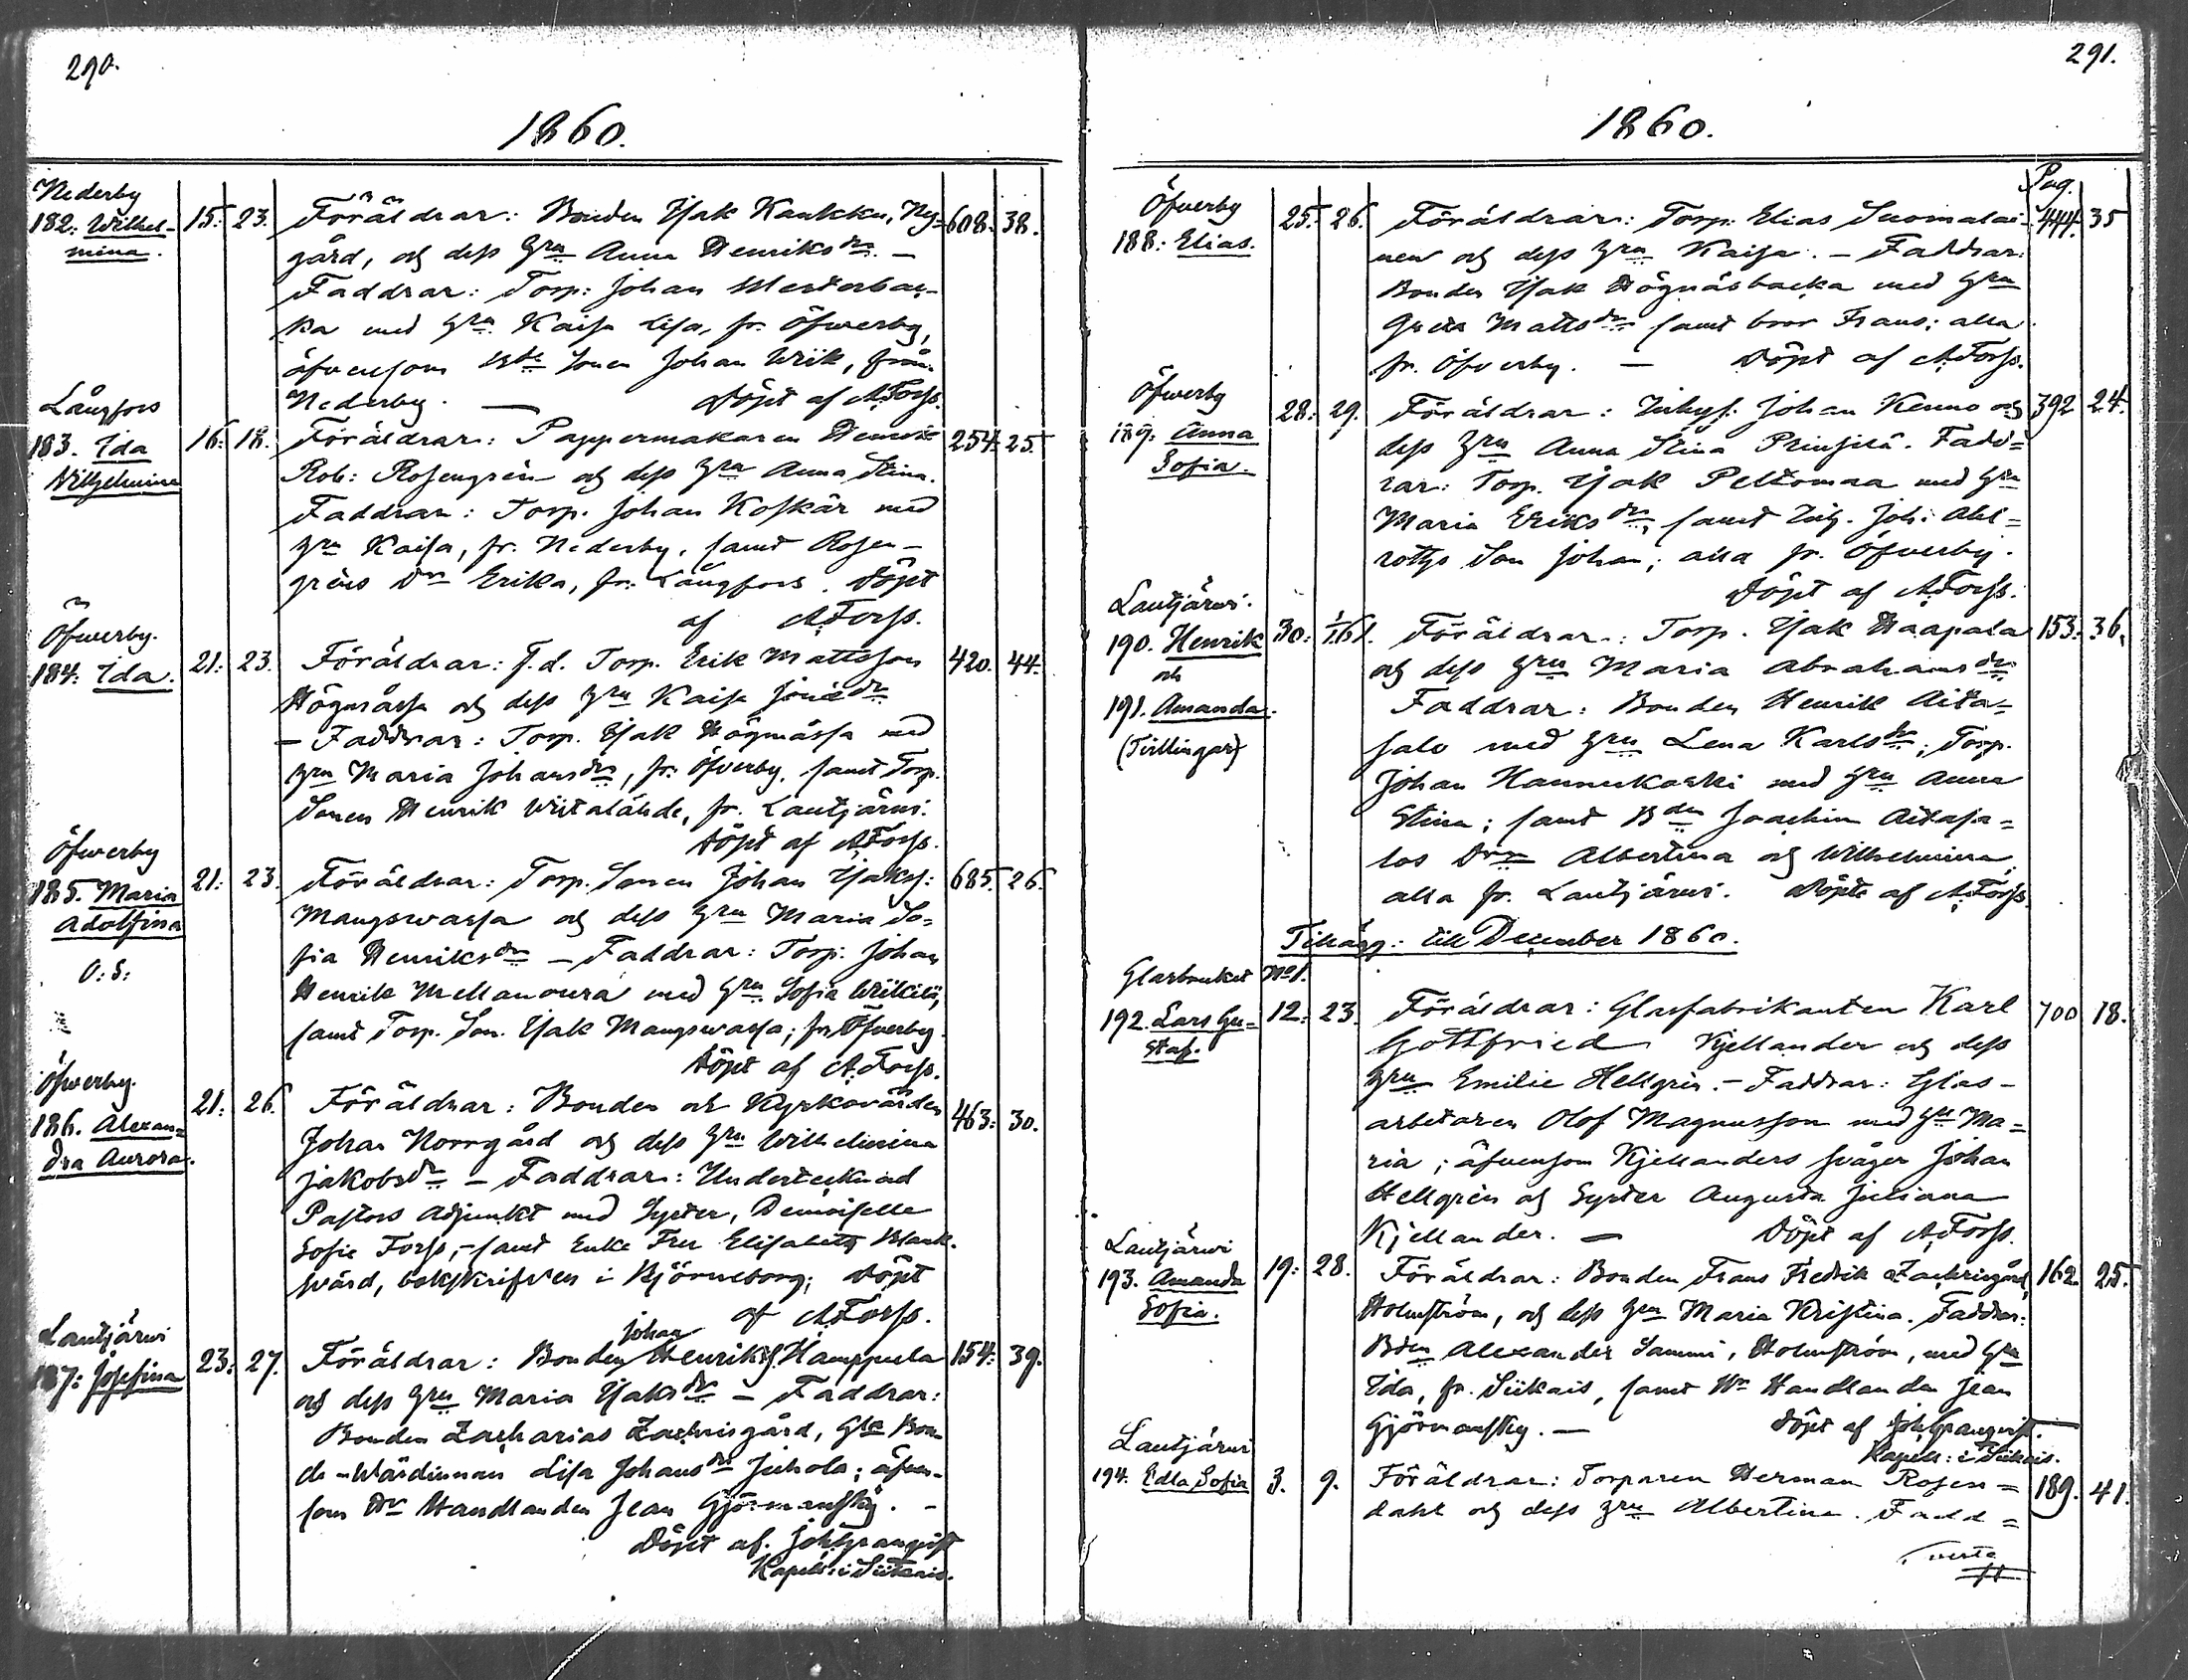 290.
1860.
Nederby
182: Wilhel-
mina.
15: 23. Föräldrar: Bonden Isak Kaukku, Ny- 608. 38.
gård, och dess Hru Anna Henriksdr. –
Faddrar: Torp: Johan Westerbac-
ka med Hru Kaisa Lisa, fr. Öfverby,
äfvensom Bde Sonen Johan Wiik, från
Nederby. — Döpt af A.Forss.
Långfors
183. Ida
Wilhelmina
16: 18. Föräldrar: Pappermakaren Henrik 254. 25.
Rob: Rosengrén och dess Hru Anna Stina.
Faddrar: Torp. Johan Koskär med
Hru Kaisa, fr. Nederby, samt Rosen-
gréns Dr Erika, fr. Långfors. Döpt
af A.Forss.
Öfverby.
184. Ida.
21: 23. Föräldrar: F.d. Torp. Erik Mattsson 420. 44.
Högmåssa och dess Hru Kaisa Jonaedr
– Faddrar: Torp. Isak Högmåssa med
Hru Maria Johansdr, fr. Öfverby, samt Torp.
Sonen Henrik Wiitalähde, fr. Lautjärvi.
Döpt af A.Forss.
Öfverby
185. Maria
Adolfina
O: S:
21: 23. Föräldrar: Torp. Sonen Johan Isaks: 685. 26.
Mangsvassa och dess Hru Maria So-
fia Henriksdr – Faddrar: Torp: Johan
Henrik Mellanoura med Hru Sofia
samt Torp. Son. Isak Mangsvassa; fr. Öfverby.
Döpt af A.Forss.
Öfverby.
186. Alexan-
dra Aurora.
21: 26. Föräldrar: Bonden och Kyrkovärden 463: 30.
Johan Norrgård och dess Hru Wilhelmina
Jakobsdr – Faddrar: Undertecknad
Pastors Adjunkt med Syster, Demoiselle
Sofie Forss, – samt Enke Fru Elisabeth Blank-
svärd, bokskrifven i Björneborg; Döpt
af A.Forss.
Lautjärvi
187: Josefina
23: 27. Föräldrar: Bonden Johan Henrikss. Hamppula 154: 39.
och dess Hru Maria Isaksdr – Faddrar:
Bonden Zacharias Zachrisgård, Gla Bon-
de-Wärdinnan Lisa Johansdr Juhola; äfven-
som Hr Handlanden Jean Gjörmansky. –
Döpt af. Joh.Granqvist
Kapell: i Siikais.
291.
1860.
Pag.
Öfverby
188: Elias.
25. 26. Föräldrar: Torp: Elias Suomalai- 444. 35
nen och dess Hru Kaisa. – Faddrar:
Bonden Isak Högnäsbacka med Hru
Greta Mattsdr samt bror Frans; alla
fr. Öfverby. — Döpt af A.Forss.
Öfverby
189: Anna
Sofia.
28: 29. Föräldrar: Inhys: Johan Kenno och 392 24.
dess Hru Anna Stina Prinsitä. Fadd-
rar: Torp. Isak Peltomaa med Hru
Maria Eriksdr, samt Inh. Joh: Ahl-
roths Son Johan; alla fr. Öfverby.
Döpt af A.Forss.
Lautjärvi.
190. Henrik
och
191. Amanda.
(Tvillingar)
30: 1/1.61. Föräldrar: Torp. Isak Haapala 153. 36.
och dess Hru Maria Abrahamsdr
Faddrar: Bonden Henrik Aita-
salo med Hru Lena Karlsdr; Torp.
Johan Hannukoski med Hru Anna
Stina; samt Bden Joachim Aitasa-
los Drar Albertina och Wilhelmina,
alla fr. Lautjärvi. Döpte af A.Forss.
Tillägg: till December 1860.
Glasbruket No 1.
192. Lars Gu-
staf.
12: 23. Föräldrar: Glasfabrikanten Karl 700 18.
Gottfried Kjellander och dess
Hru Emilie Hellgrén. – Faddrar: Glas-
arbetaren Olof Magnusson med Hru Ma-
ria; äfvensom Kjellanders svåger Johan
Hellgrén och Syster Augusta Juliana
Kjellander. — Döpt af A.Forss.
Lautjärvi
193. Amanda
Sofia.
19: 28. Föräldrar: Bonden Frans Fredrik Zachrisgård, 162. 25.
Holmström, och dess Hru Maria Kristina. Faddrar:
Bden Alexander Sammi, Holmström, med Hru
Ida, fr. Siikais, samt Hr Handlanden Jean
Gjörmansky. — Döpt af Joh.Granqvist.
Kapell: i Siikais.
Lautjärvi
194. Edla Sofia
3. 9. Föräldrar: Torparen Herman Rosen- 189. 41.
dahl och dess Hru Albertina. Fadd-
verte